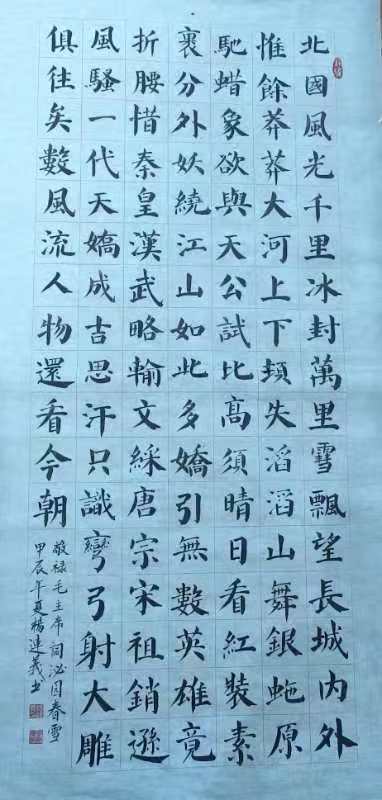 北國風光千里冰封萬里雪飄望長城內外
惟餘莽莽大河上下頓失滔滔山舞銀虵原
馳蜡象欲與天公試比高須晴日看紅裝素
裹分外妖繞江山如此多嬌引無數英雄竟
折腰惜秦皇漢武略輸文綵唐宗宋祖銷遜
風騷一代天嬌成吉思汗只識彎弓射大雕
俱往矣數風流人物還看今朝
敬禄毛主席词泌园春雪
甲辰年夏楊連義书